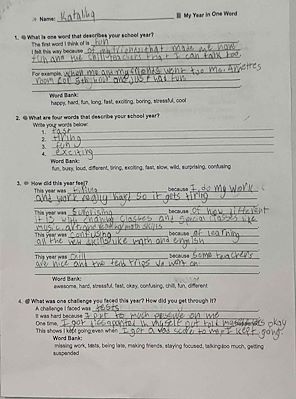 Name: Katalina My Year in One Word
1. What is one word that describes your school year?
The first word I think of is fun
I felt this way because of my friends that made me have
fun and the chill teachers that I can talk too
For example, when me and my friends went too Ms.
room for 5th hour and just had fun
Word Bank:
happy, hard, fun, long, fast, exciting, boring, stressful, cool
2. What are four words that describe your school year?
Write your words below:
1. fast
2. tiring
3. fun
4. exciting
Word Bank:
fun, busy, loud, different, tiring, exciting, fast, slow, wild, surprising, confusing
3. How did this year feel?
This year was tiring because I do my work
and work really hard so it gets tiring
This year was surprising because of how different
it is with changing classes and special classes like
music, art and reading/math skills
This year was confusing because of learning
all the new skills like math and english
This year was chill because some teachers
are nice and the field trips we went on
Word Bank:
awesome, hard, stressful, fast, okay, confusing, chill, fun, different
4. What was one challenge you faced this year? How did you get through it?
A challenge I faced was tests
It was hard because I put to much pressure on me
One time, I got disappointed in myself but told myself its okay
This shows I kept going even when I got a bad score to my I kept going!
Word Bank:
missing work, tests, being late, making friends, staying focused, talking too much, getting
suspended